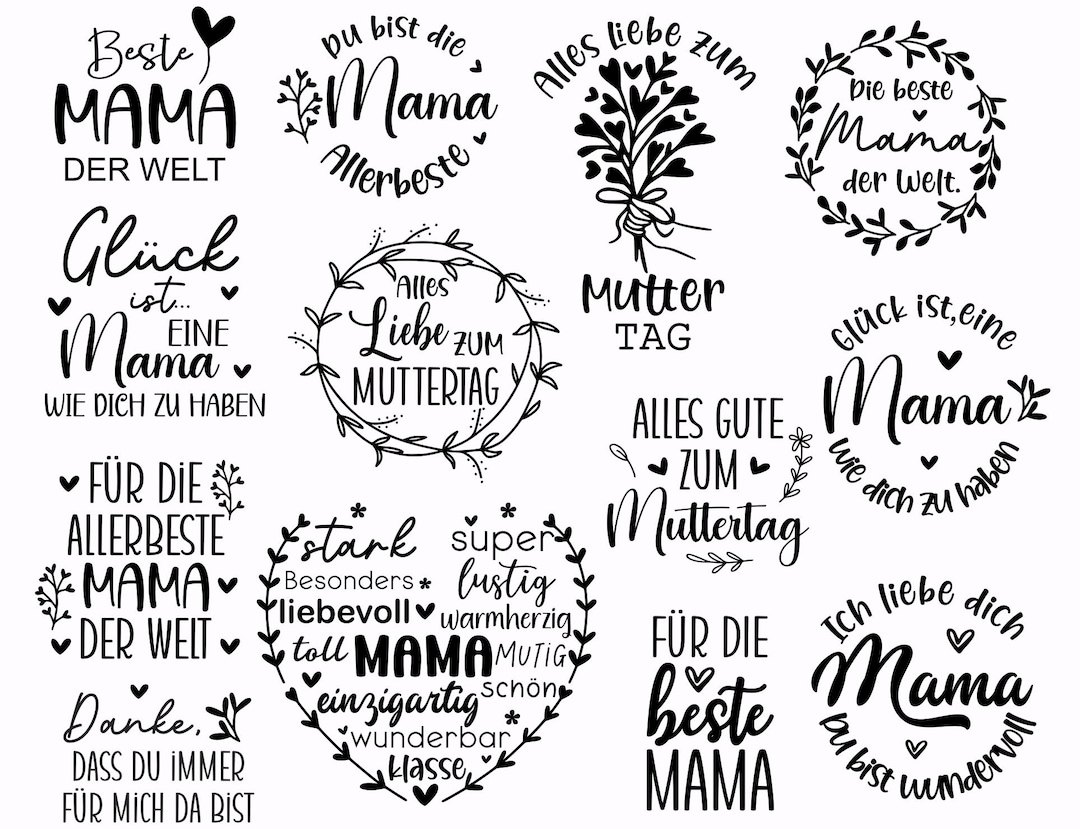 Beste
MAMA
DER WELT
Du bist die
Mama
Allerbeste
Alles Liebe zum
Mutter
TAG
Die beste
Mama
der Welt.
Glück
ist...
EINE
Mama
WIE DICH ZU HABEN
Alles
Liebe ZUM
MUTTERTAG
Glück ist, eine
Mama
wie dich zu haben
FÜR DIE
ALLERBESTE
MAMA
DER WELT
stark
super
Besonders
lustig
liebevoll
warmherzig
toll MAMA MUTIG
einzigartig schön
wunderbar
klasse
ALLES GUTE
ZUM
Muttertag
Danke,
DASS DU iMMER
FÜR MiCH DA BiST
FÜR DIE
beste
MAMA
Ich liebe dich
Mama
Du bist wundervoll